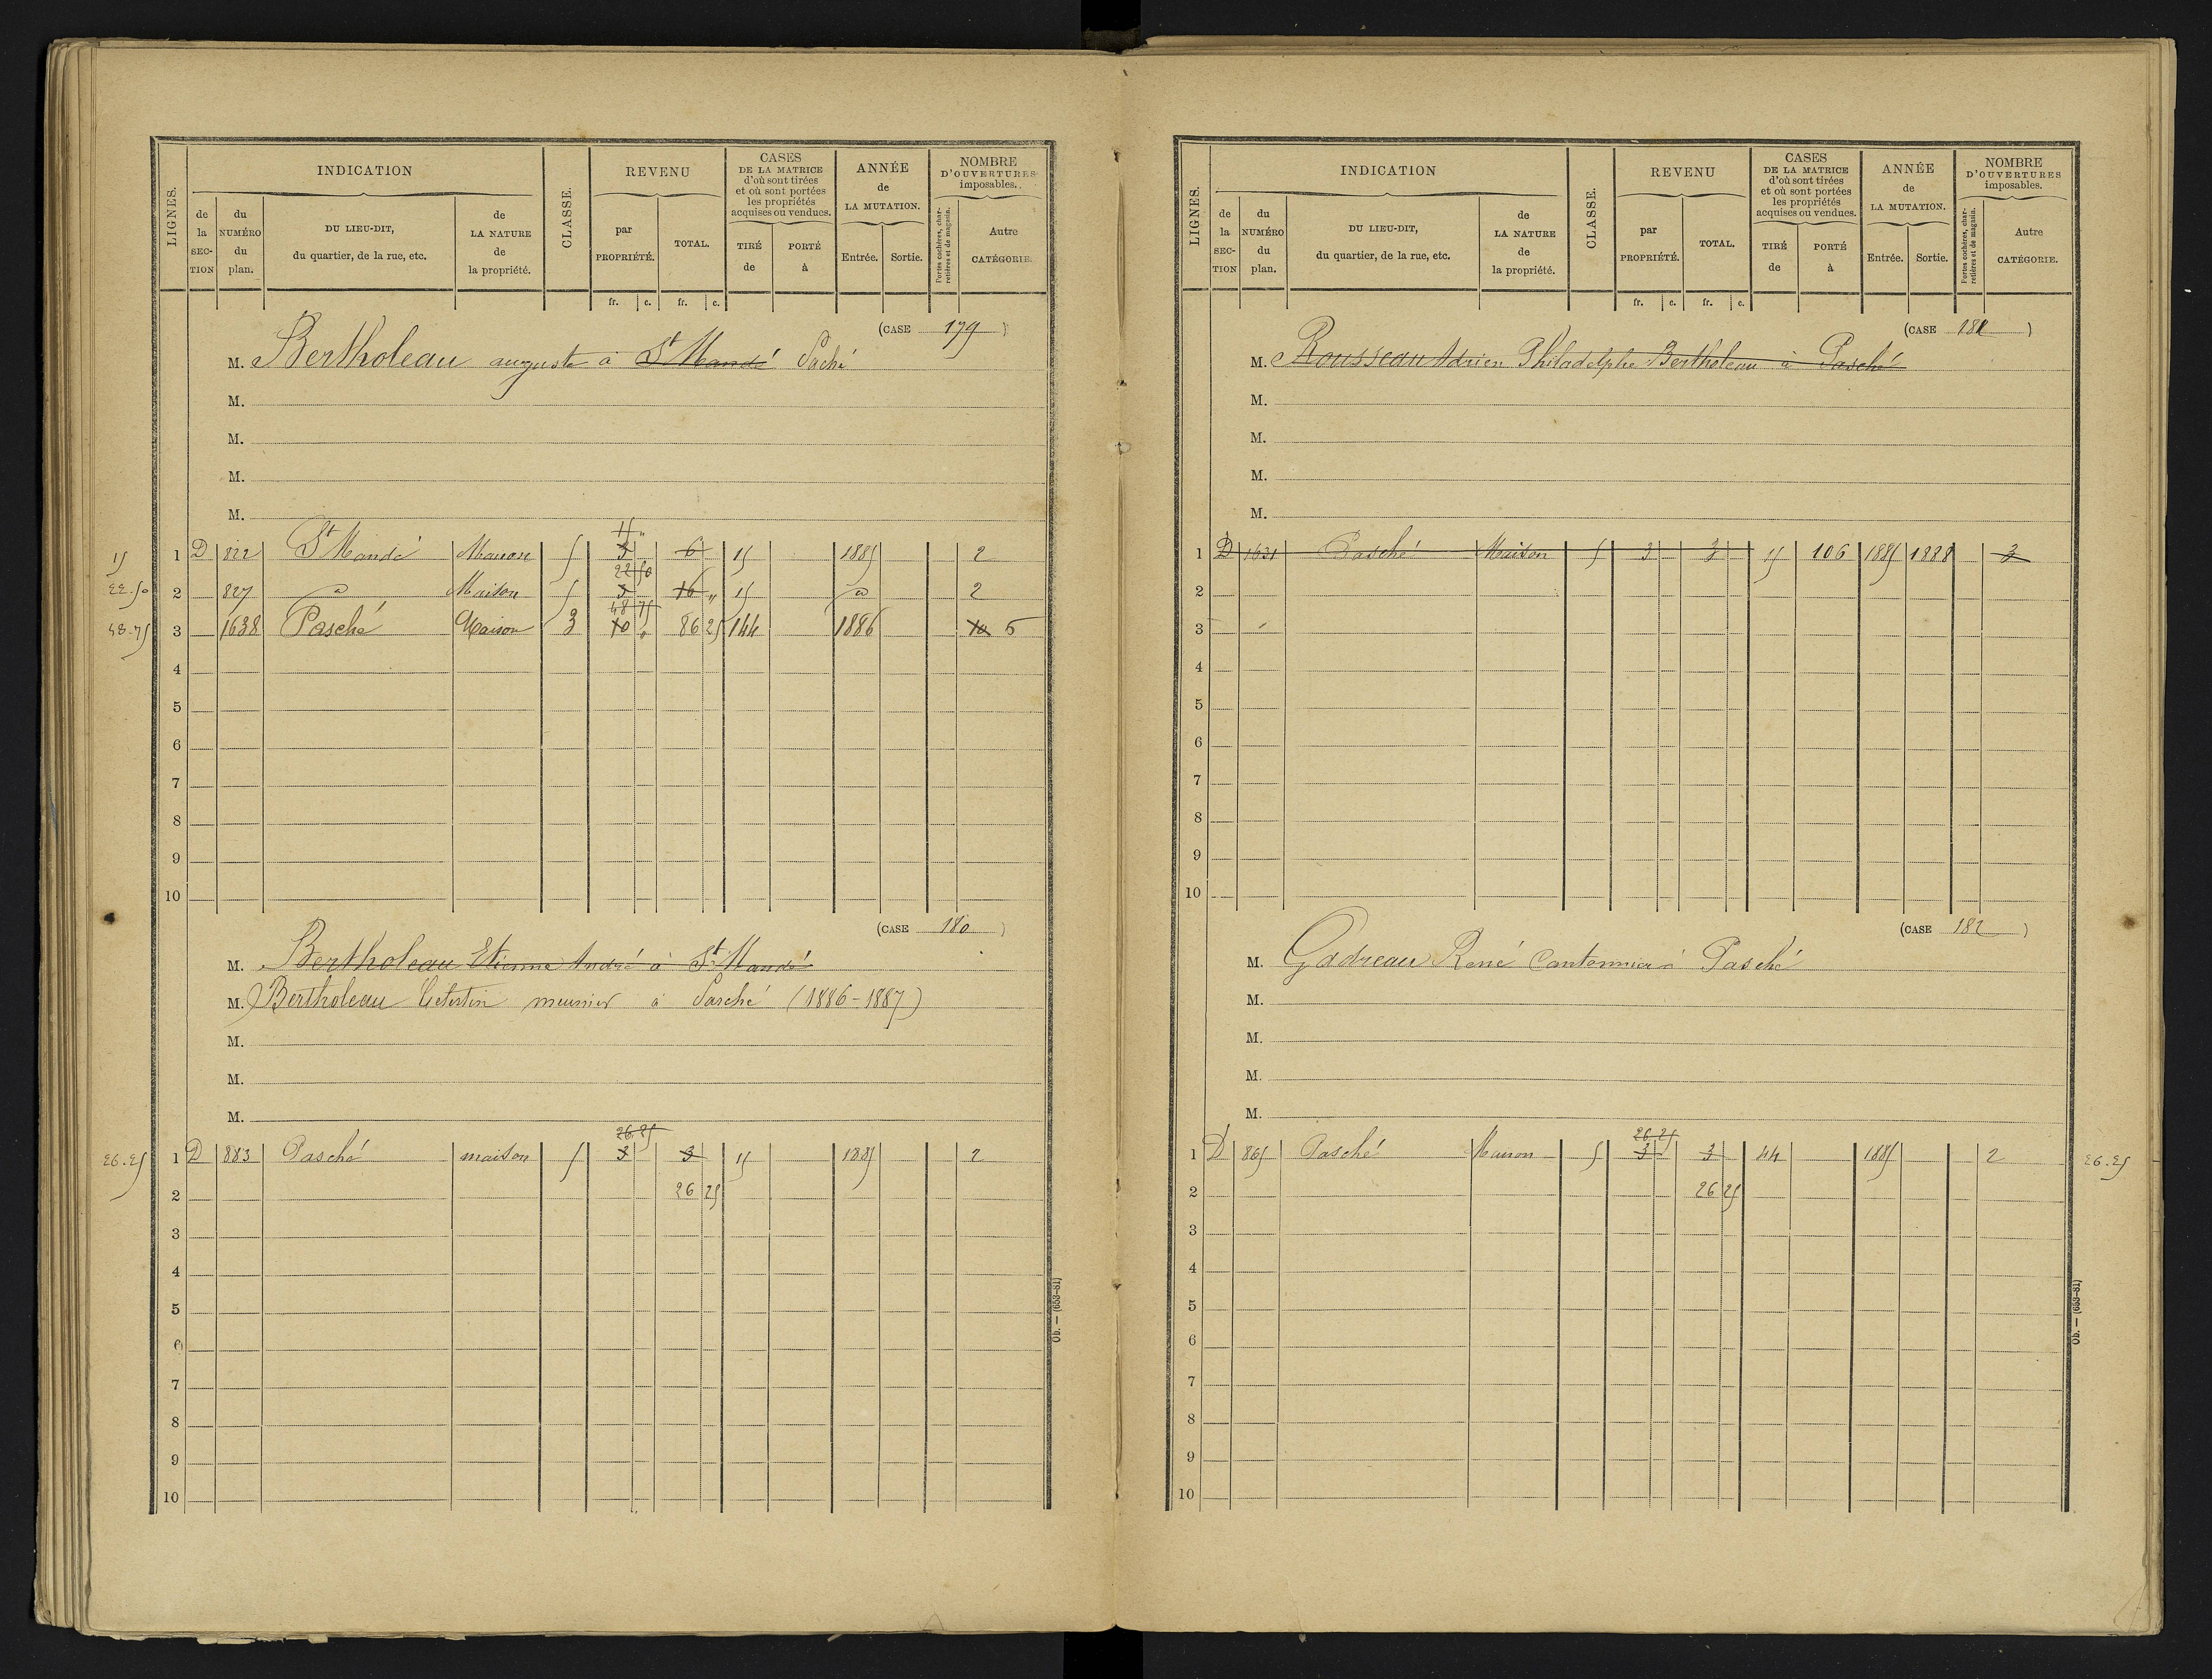 LIGNES.
INDICATION
de la SECTION
du NUMÉRO du plan.
DU LIEU-DIT, du quartier, de la rue, etc.
de LA NATURE de la propriété.
CLASSE.
REVENU
par PROPRIÉTÉ.
TOTAL.
CASES DE LA MATRICE d'où sont tirées et où sont portées les propriétés acquises ou vendues.
TIRÉ de
PORTÉ à
ANNÉE de LA MUTATION.
Entrée.
Sortie.
NOMBRE D'OUVERTURES imposables.
Portes cochères, charretières et de magasin.
Autre CATÉGORIE.
fr. c. fr. c.
(CASE 179)
M. Bertholeau auguste à St Mandé Paché
M.
M.
M.
M.
15 "
15 1 D 822 St Mandé Maison 5 3 6 15 1885 2
22 50
22.50 2 827 d Maison 5 3 16 " 15 d 2
48 75
48-75 3 1638 Pasché Maison 3 10 " 86 25 144 1886 10 5
4
5
6
7
8
9
10
(CASE 180)
M. Bertholeau Etienne André à St Mandé
M. Bertholeau Célestin meunier à Pasché (1886-1887)
M.
M.
M.
26.25
26.25 1 D 883 Pasché maison 5 3 3 15 1885 2
2 26 25
3
4
5
6
7
8
9
10
Ob. — (653-81)
LIGNES.
INDICATION
de la SECTION
du NUMÉRO du plan.
DU LIEU-DIT, du quartier, de la rue, etc.
de LA NATURE de la propriété.
CLASSE.
REVENU
par PROPRIÉTÉ.
TOTAL.
CASES DE LA MATRICE d'où sont tirées et où sont portées les propriétés acquises ou vendues.
TIRÉ de
PORTÉ à
ANNÉE de LA MUTATION.
Entrée.
Sortie.
NOMBRE D'OUVERTURES imposables.
Portes cochères, charretières et de magasin.
Autre CATÉGORIE.
fr. c. fr. c.
(CASE 181)
M. Rousseau Adrien Philadelphe Bertholeau à Pasché
M.
M.
M.
M.
1 D 1631 Pasché Maison 5 3 3 15 106 1885 1888 3
2
3
4
5
6
7
8
9
10
(CASE 182)
M. Gadreau René Cantonnier à Pasché
M.
M.
M.
M.
26 25
1 D 865 Pasché Maison 5 3 3 44 1885 2 26.25
2 26 25
3
4
5
6
7
8
9
10
Ob. — (653-81)